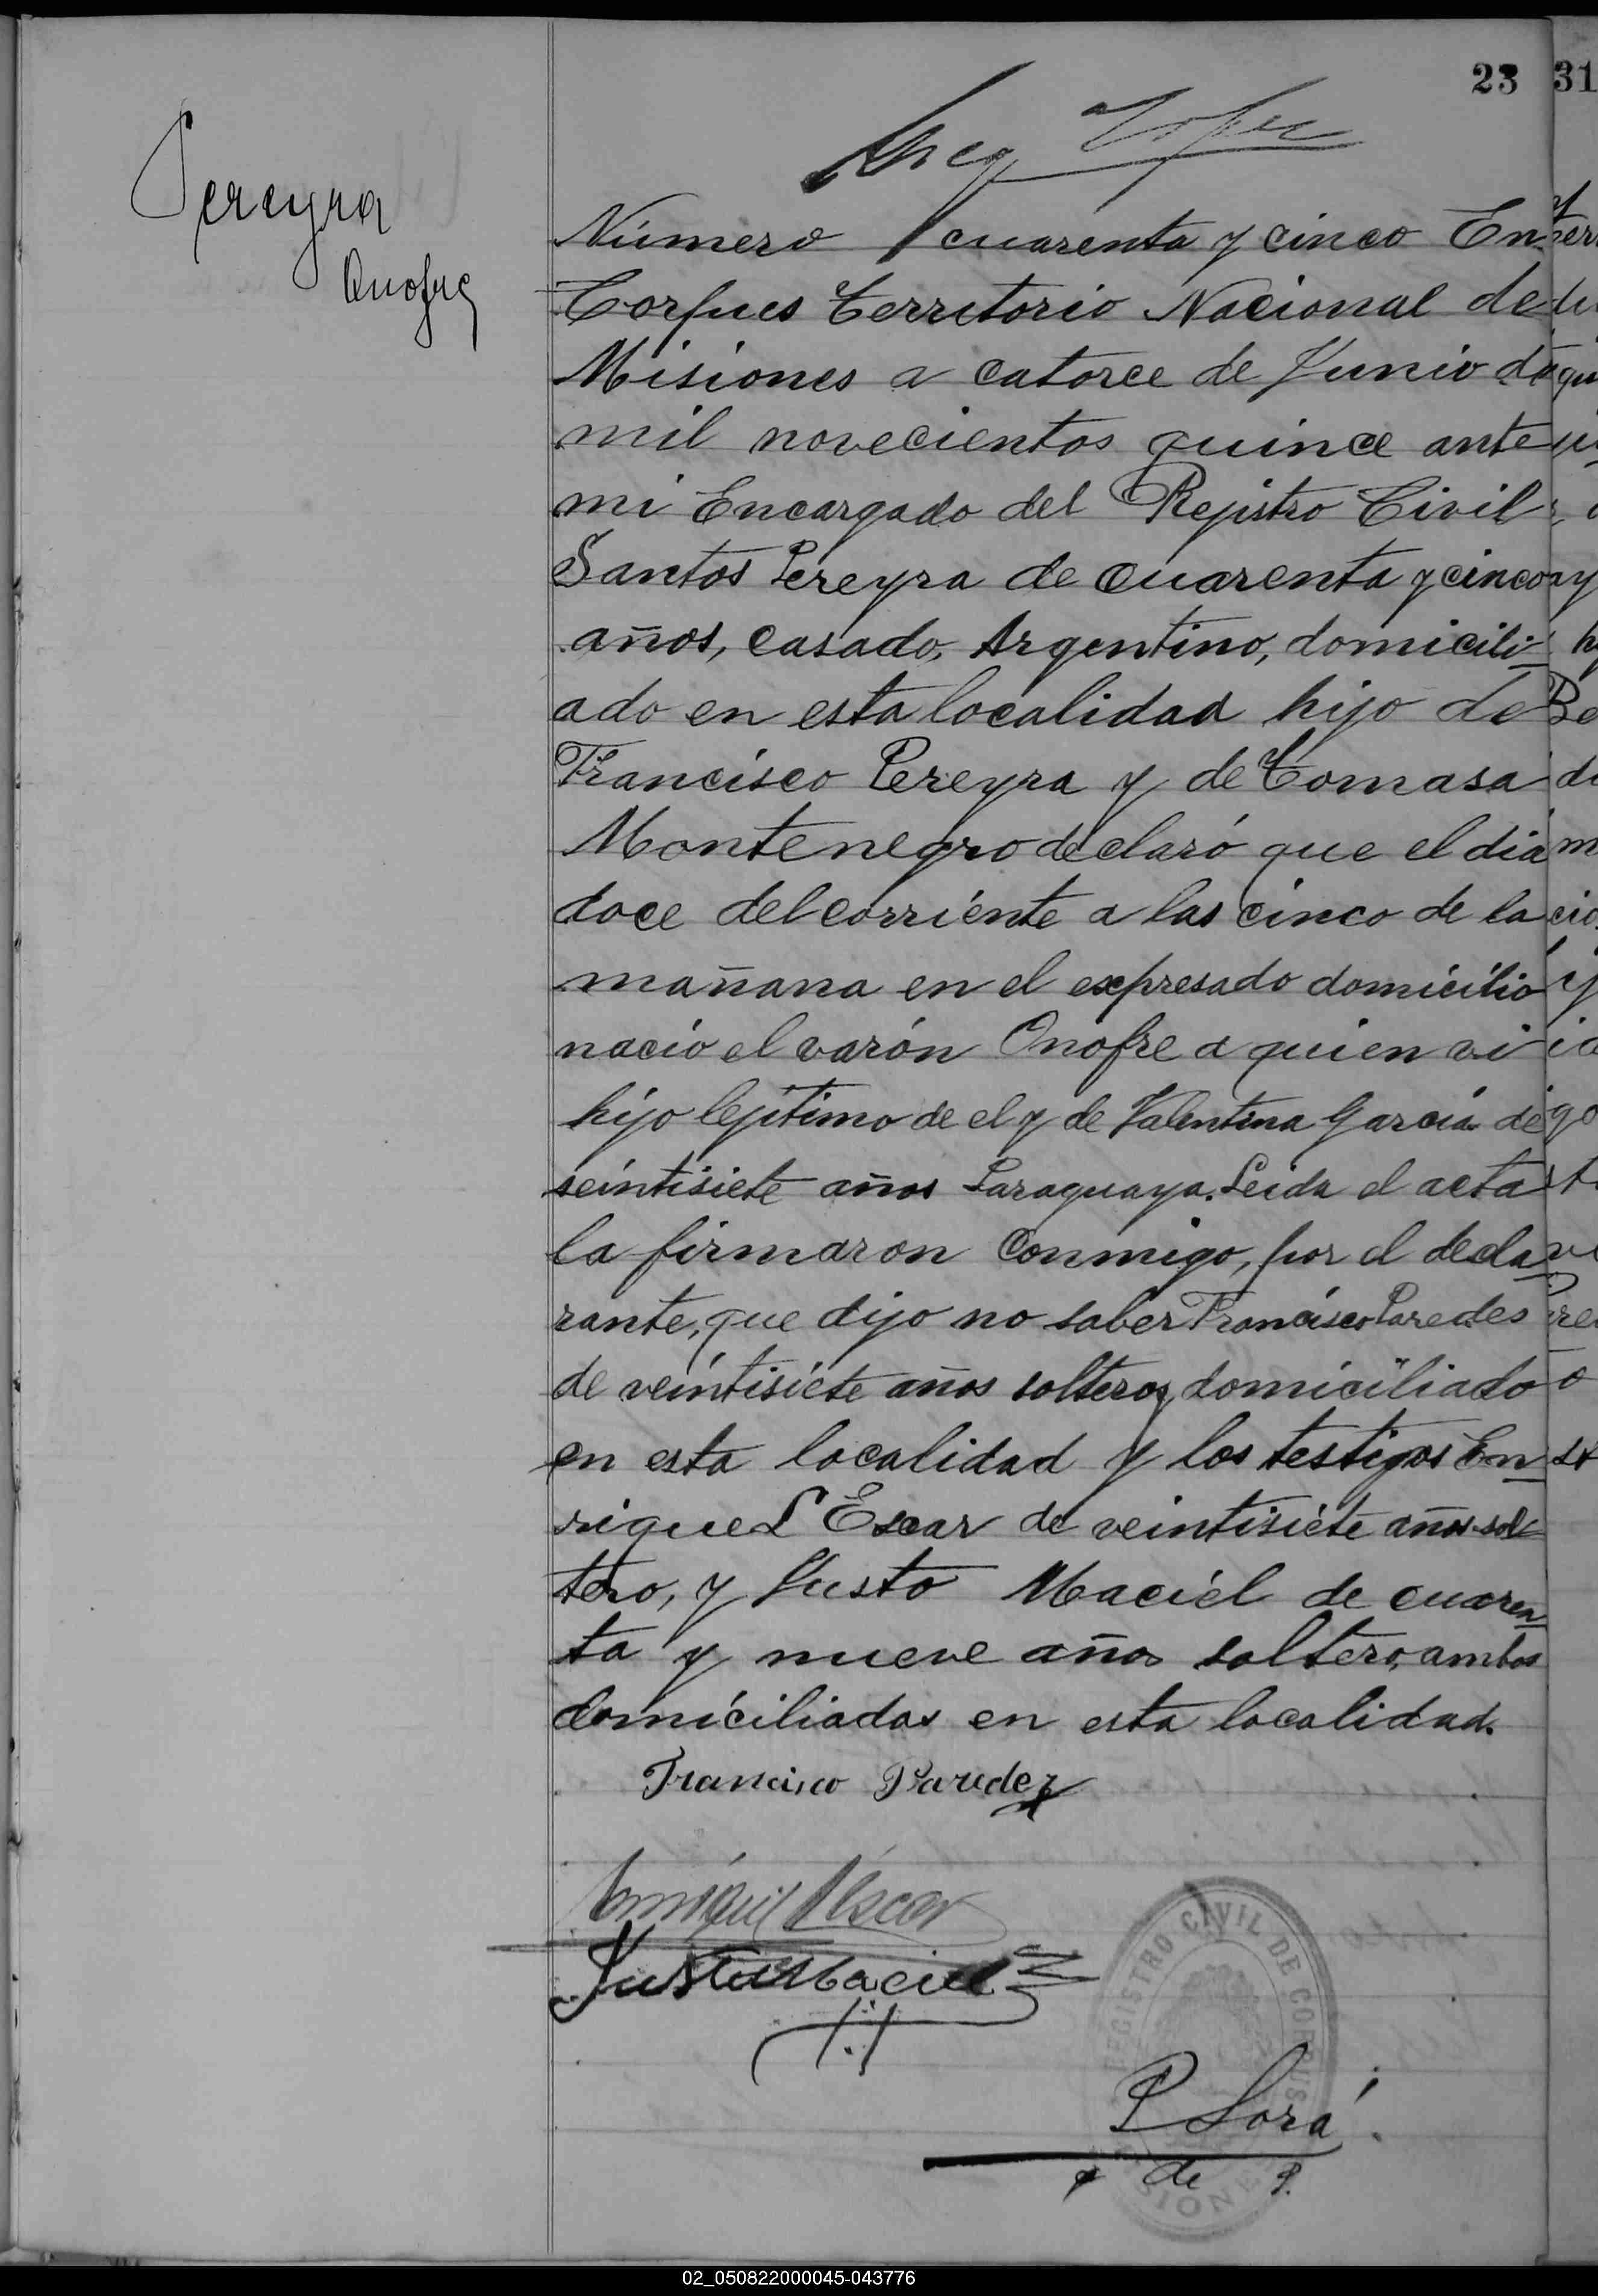 23
31
Pereyra
Onofre
Número cuarenta y cinco En
Corpues Territorio Nacional de
Misiones a catorce de Junio de
mil novecientos quince ante
mi Encargado del Rejistro Civil
Santos Pereyra de cuarenta y cinco
años, casado, Argentino, domicili-
ado en esta localidad hijo de
Francisco Pereyra y de Tomasa
Montenegro declaró que el dia
doce del corriente a las cinco de la
mañana en el expresado domicilio
nació el varón Onofre a quien vi
hijo lejitimo de el y de Valentina Garcia de
veintisiete años Paraguaya. Leida el acta
la firmaron conmigo, por el decla
rante, que dijo no saber Francisco Paredes
de veintisiete años soltero y domiciliado
en esta localidad y los testigos En
rique L Escar de veintisiete años sol
tero, y Justo Maciel de cuaren
ta y nueve años soltero, ambos
domiciliados en esta localidad.
Francisco Paredez
Enrique Escar
Justo Maciel
REGISTRO CIVIL DE CORPUS
MISIONES
P Lorá
J de P.
02_050822000045-043776